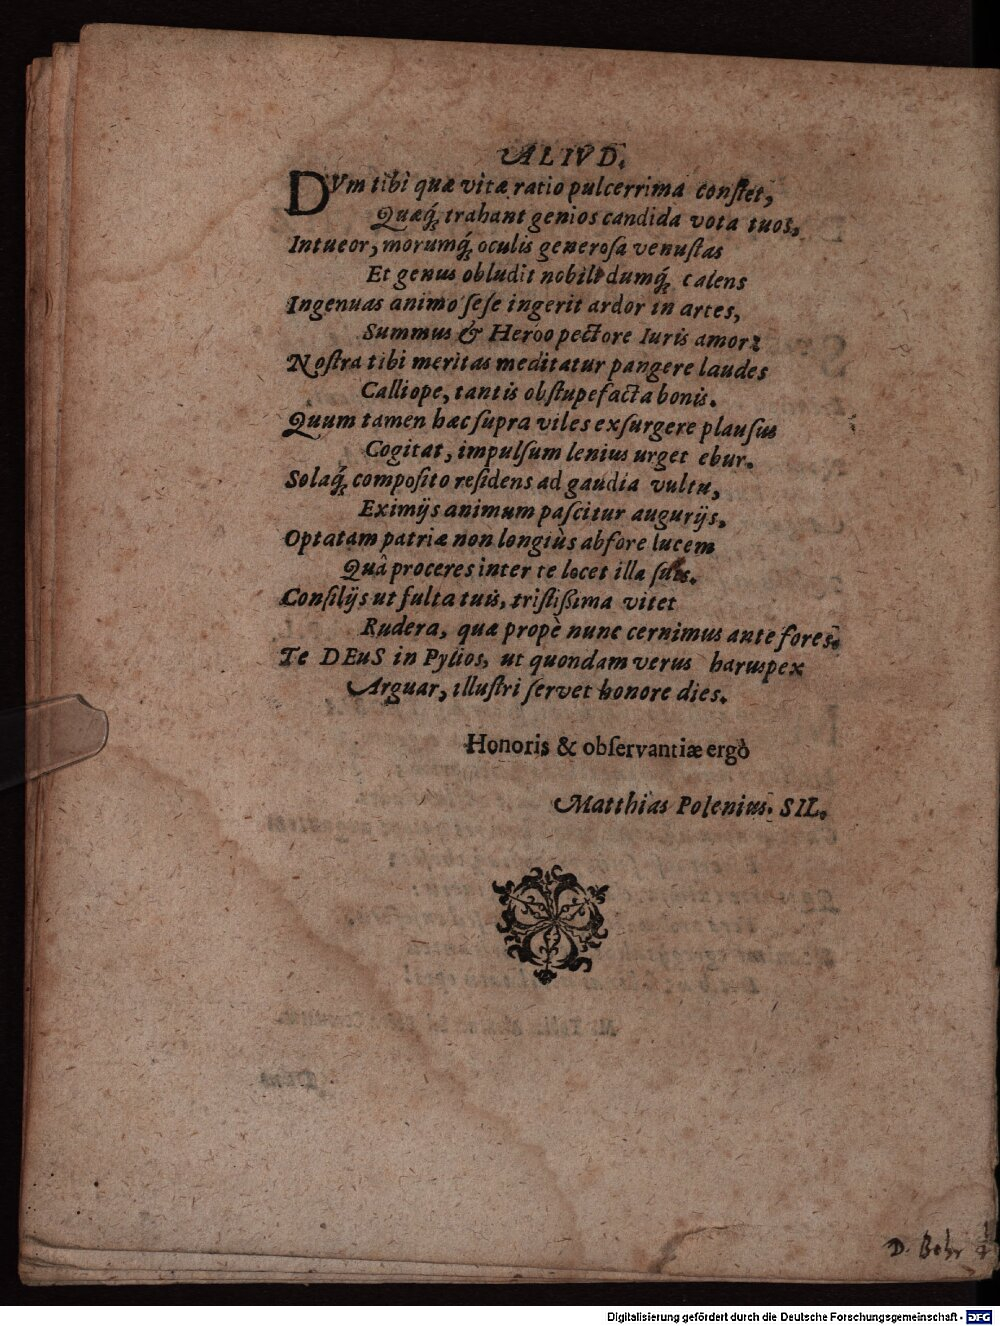 ALIVD.
DVm tibi quæ vitæ ratio pulcerrima conſtet,
Quæq́; trahant genios candida vota tuos,
Intueor, morumq́; oculis generoſa venuſtas
Et genus obludit nobile dumq́; calens
Ingenuas animo ſeſe ingerit ardor in artes,
Summus & Heroo pectore Iuris amor:
Noſtra tibi meritas meditatur pangere laudes
Calliope, tantis obſtupefacta bonis.
Quum tamen hæc ſupra viles exſurgere plauſus
Cogitat, impulſum lenius urget ebur.
Solaq́; compoſito reſidens ad gaudia vultu,
Eximijs animum paſcitur augurijs.
Optatam patriæ non longiùs abfore lucem
Quâ proceres inter te locet illa ſuos.
Conſilijs ut fulta tuis, triſtißima vitet
Rudera, quæ propè nunc cernimus ante fores.
Te DEuS in Pylios, ut quondam verus haruspex
Arguar, illuſtri ſervet honore dies.
Honoris & obſervantiæ ergò
Matthias Polenius. SIL.
D. Bohr
Digitalisierung gefördert durch die Deutsche Forschungsgemeinschaft - DFG